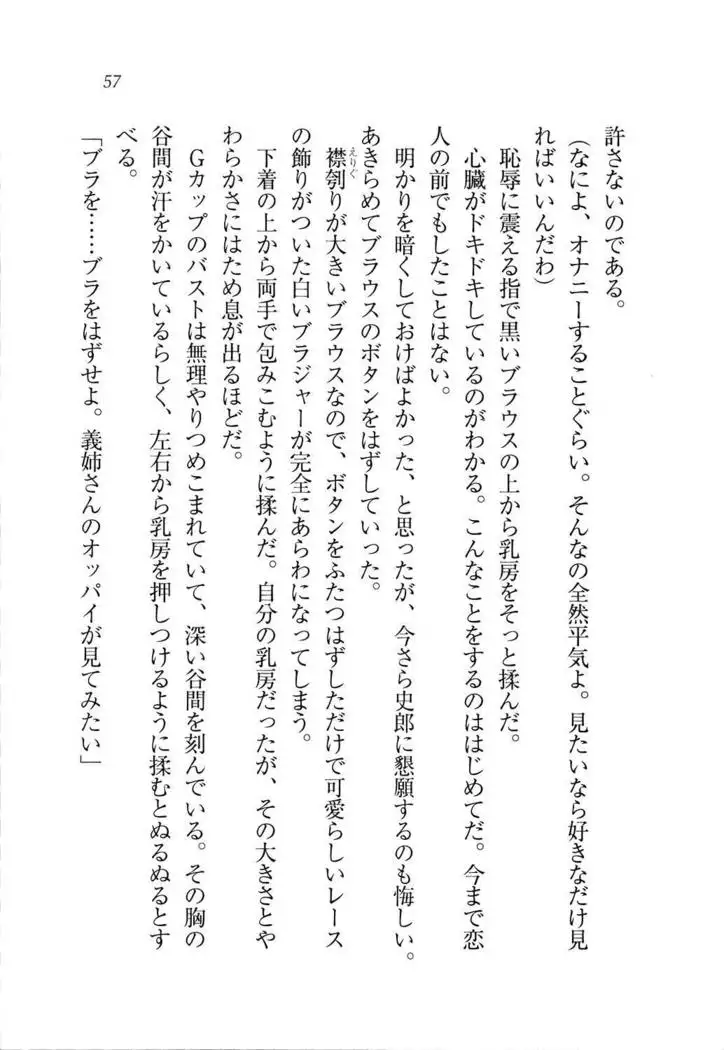 57
許さないのである。
(なによ、オナニーすることぐらい。そんなの全然平気よ。見たいなら好きなだけ見
ればいいんだわ)
恥辱に震える指で黒いブラウスの上から乳房をそっと揉んだ。
心臓がドキドキしているのがわかる。こんなことをするのははじめてだ。今まで恋
人の前でもしたことはない。
明かりを暗くしておけばよかった、と思ったが、今さら史郎に懇願するのも悔しい。
あきらめてブラウスのボタンをはずしていった。
襟刳りが大きいブラウスなので、ボタンをふたつはずしただけで可愛らしいレース
えりぐ
の飾りがついた白いブラジャーが完全にあらわになってしまう。
下着の上から両手で包みこむように揉んだ。自分の乳房だったが、その大きさとや
わらかさにはため息が出るほどだ。
Gカップのバストは無理やりつめこまれていて、深い谷間を刻んでいる。その胸の
谷間が汗をかいているらしく、左右から乳房を押しつけるように揉むとぬるぬるとす
べる。
「ブラを……ブラをはずせよ。義姉さんのオッパイが見てみたい」